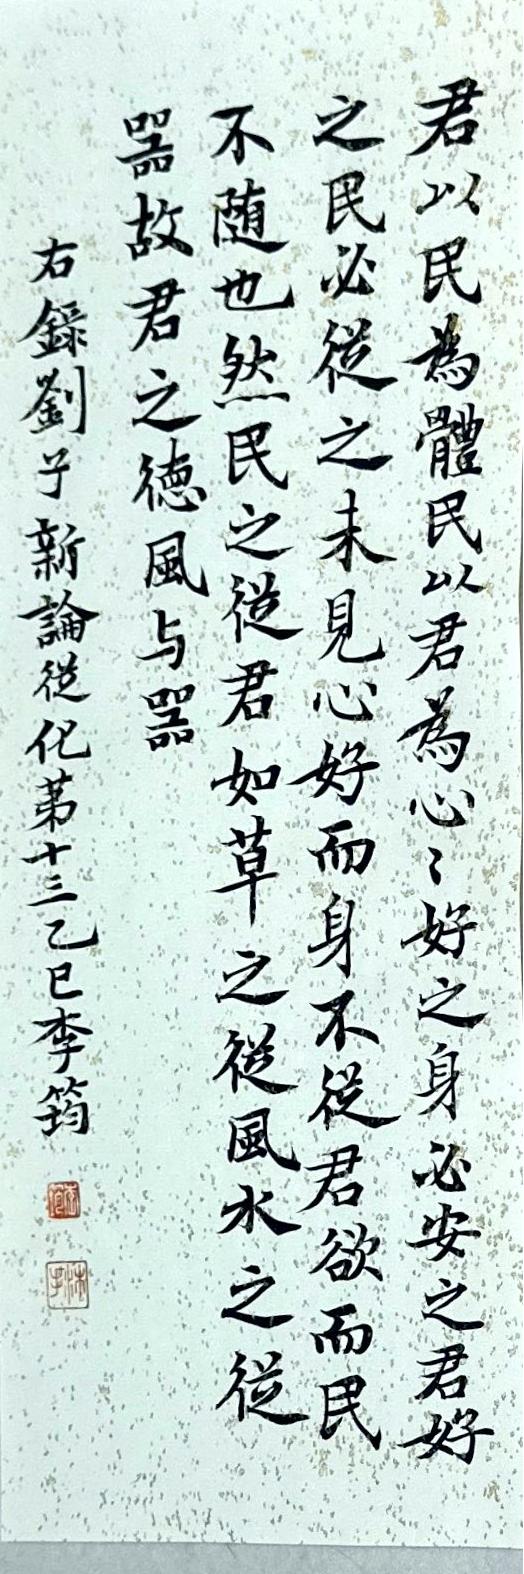 君以民為體民以君為心〻好之身必安之君好
之民必從之未見心好而身不從君欲而民
不随也然民之從君如草之從風水之從
噐故君之德風与噐
右錄劉子新論從化苐十三乙巳李筠